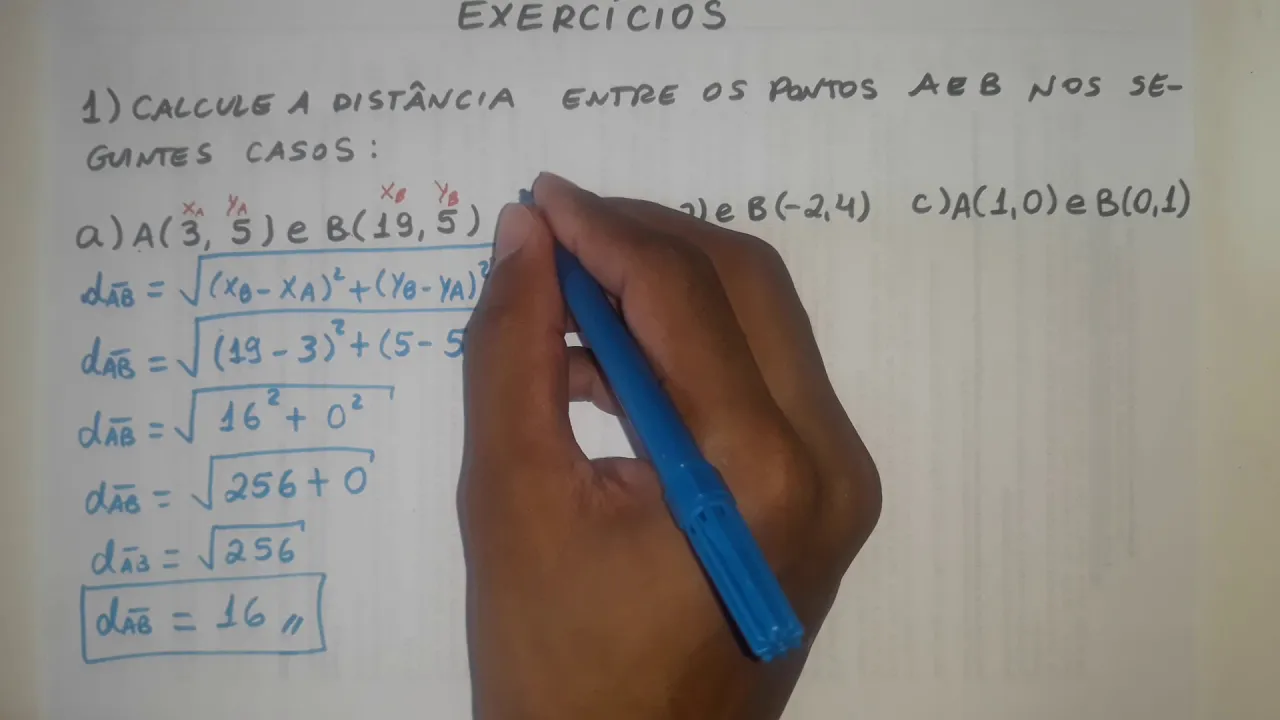 EXERCÍCIOS
1) CALCULE A DISTÂNCIA ENTRE OS PONTOS A E B NOS SE-
GUINTES CASOS:
a) A(3, 5) e B(19, 5) e B(-2,4) c) A(1,0) e B(0,1)
xA yA xB yB
dAB̅ = √(xB - xA)² + (yB - yA)²
dAB̅ = √(19 - 3)² + (5 - 5
dAB̅ = √16² + 0²
dAB̅ = √256 + 0
dAB̅ = √256
dAB̅ = 16 //